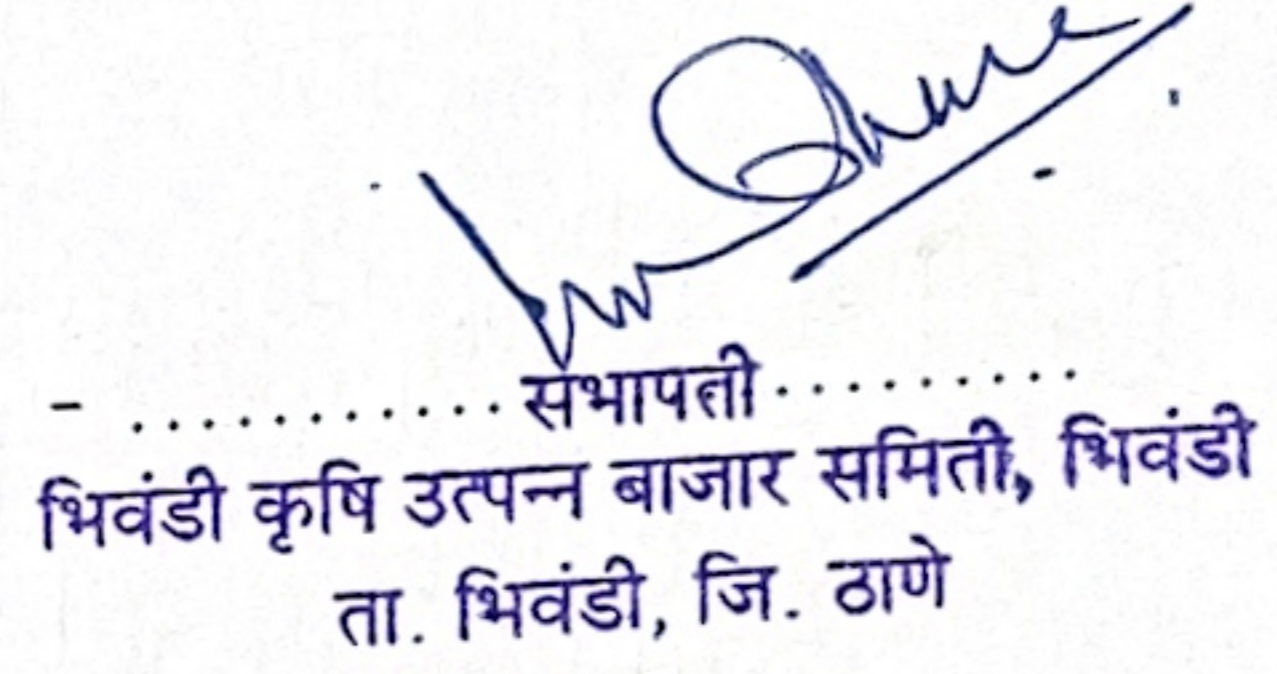 - ............ सभापती .........
भिवंडी कृषि उत्पन्न बाजार समिती, भिवंडी
ता. भिवंडी, जि. ठाणे